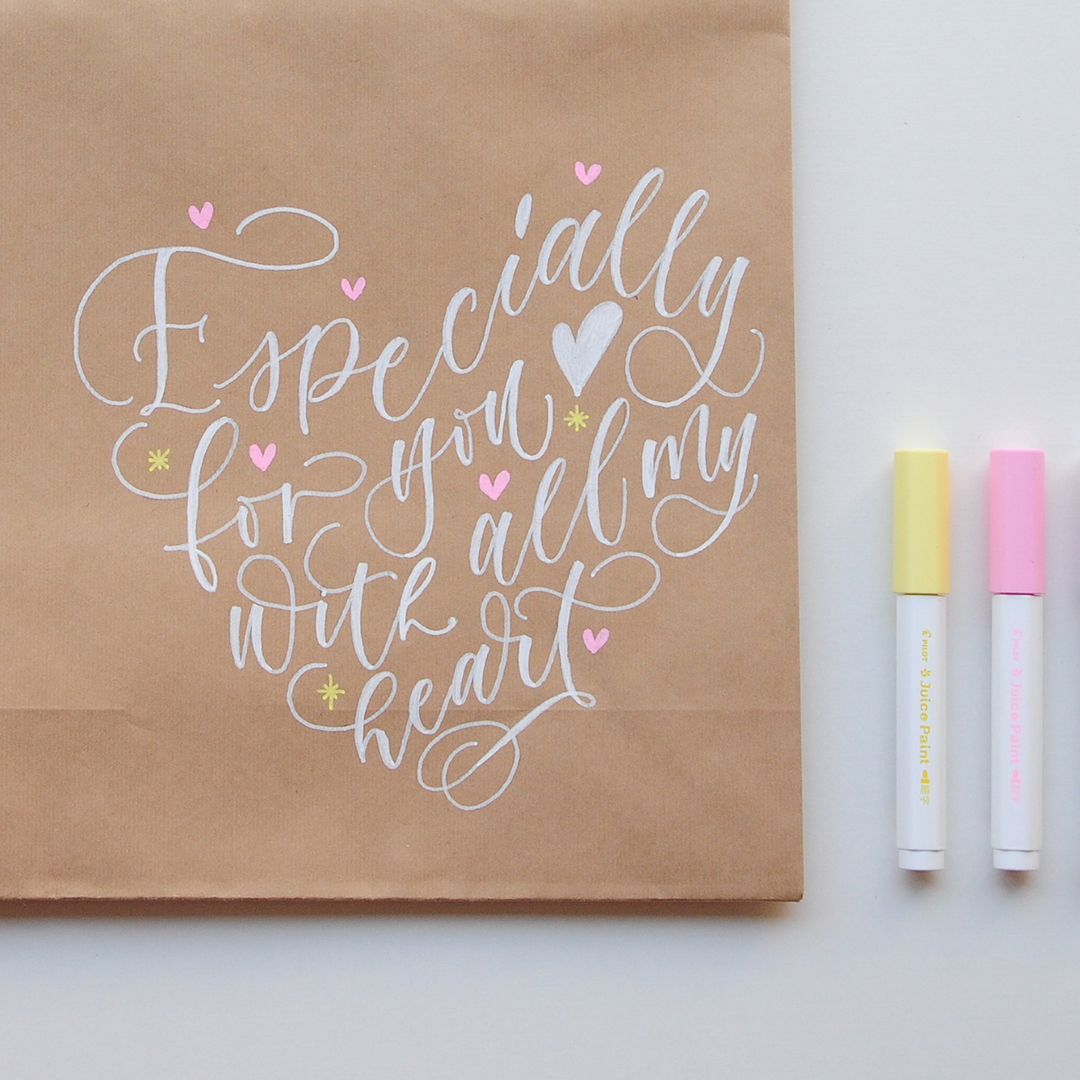 Especially
for you
all my
with
heart
PILOT Juice Paint 細字
PILOT Juice Paint